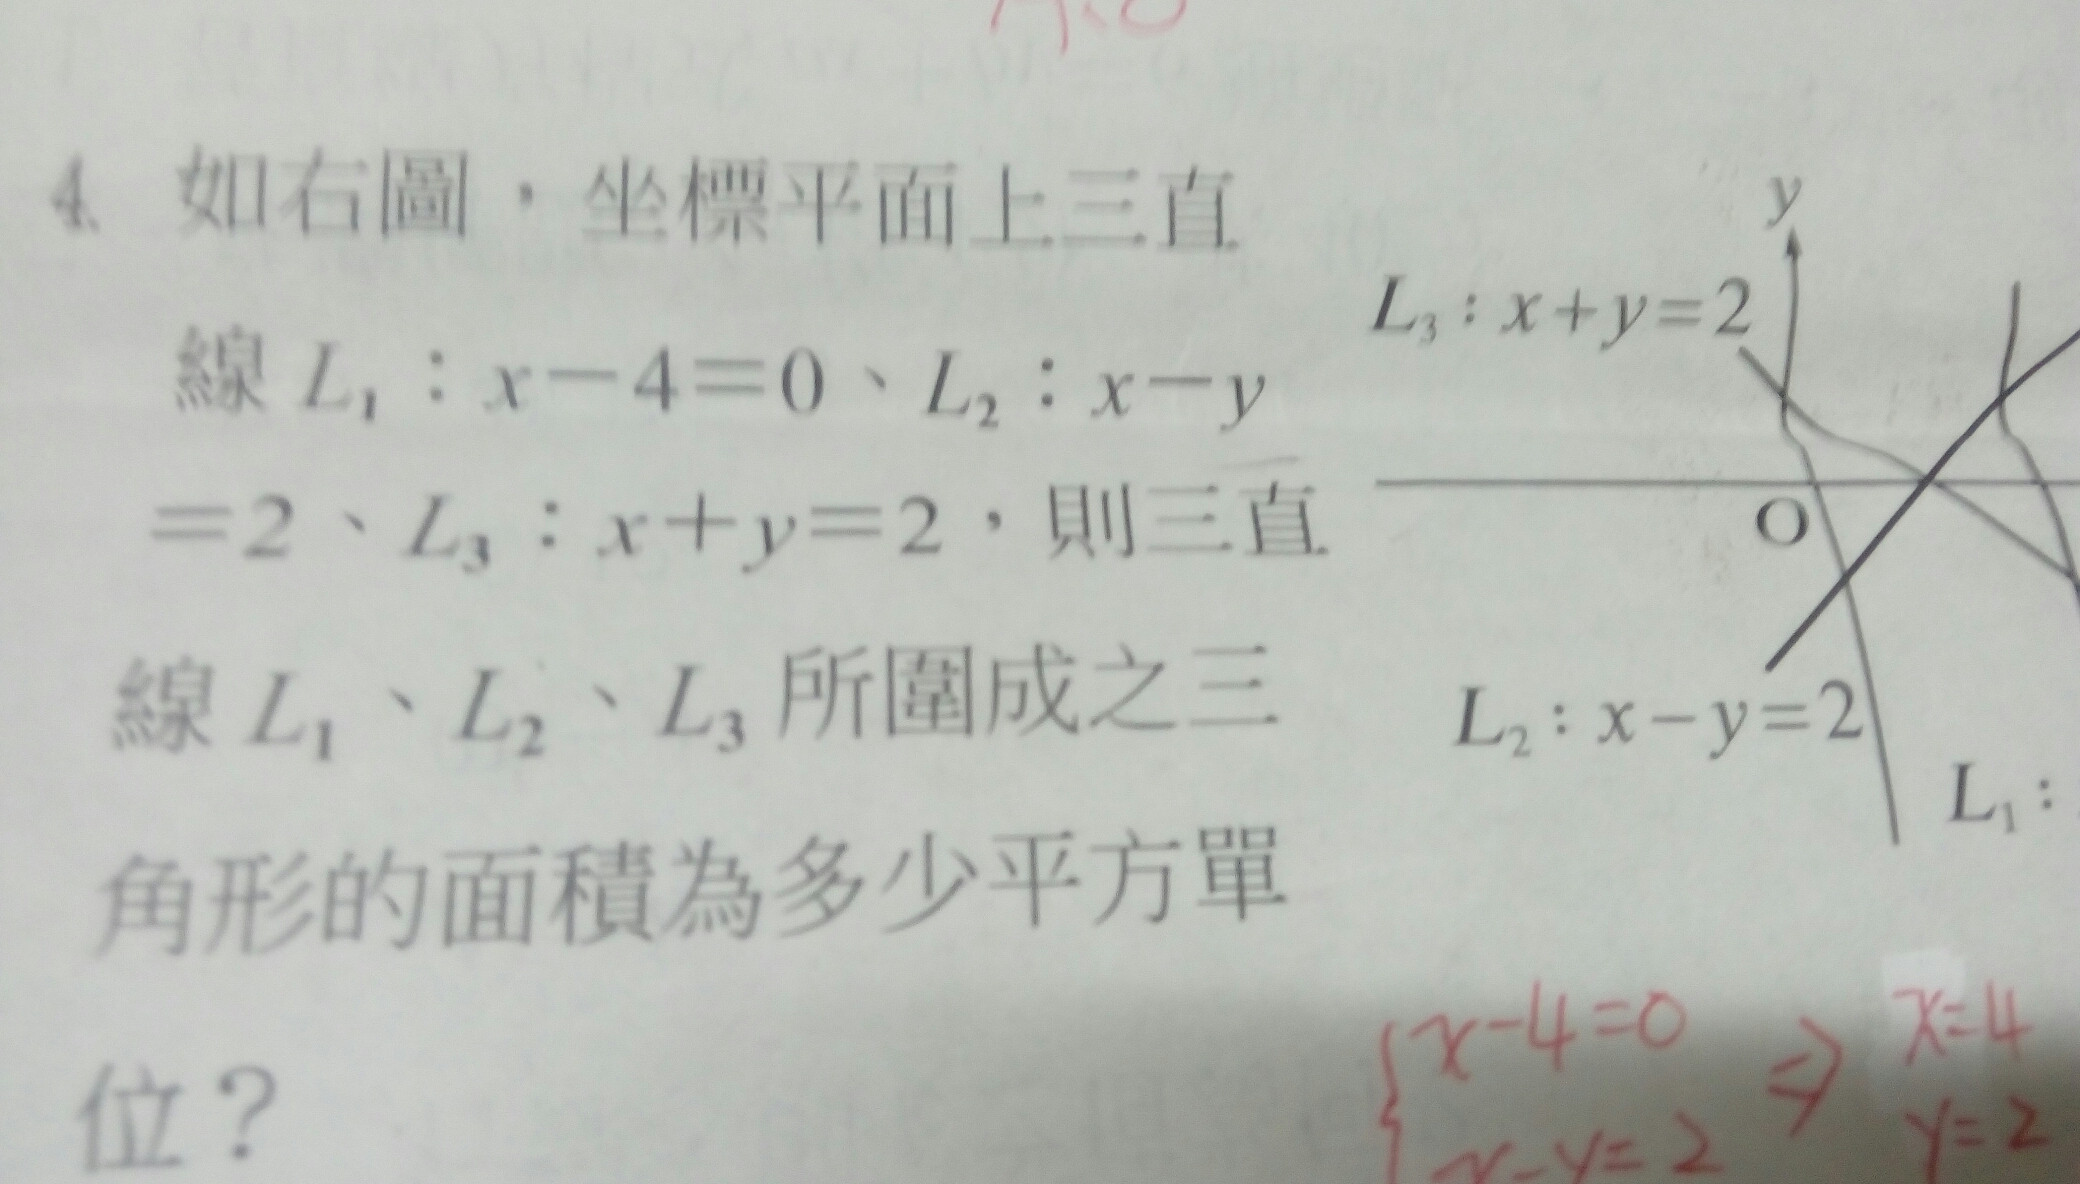 4. 如右圖，坐標平面上三直
線 L₁：x－4＝0、L₂：x－y
＝2、L₃：x＋y＝2，則三直
線 L₁、L₂、L₃ 所圍成之三
角形的面積為多少平方單
位？
y
L₃：x+y=2
O
L₂：x－y=2
L₁：
x-4=0 ⇒ x=4
x-y=2 y=2